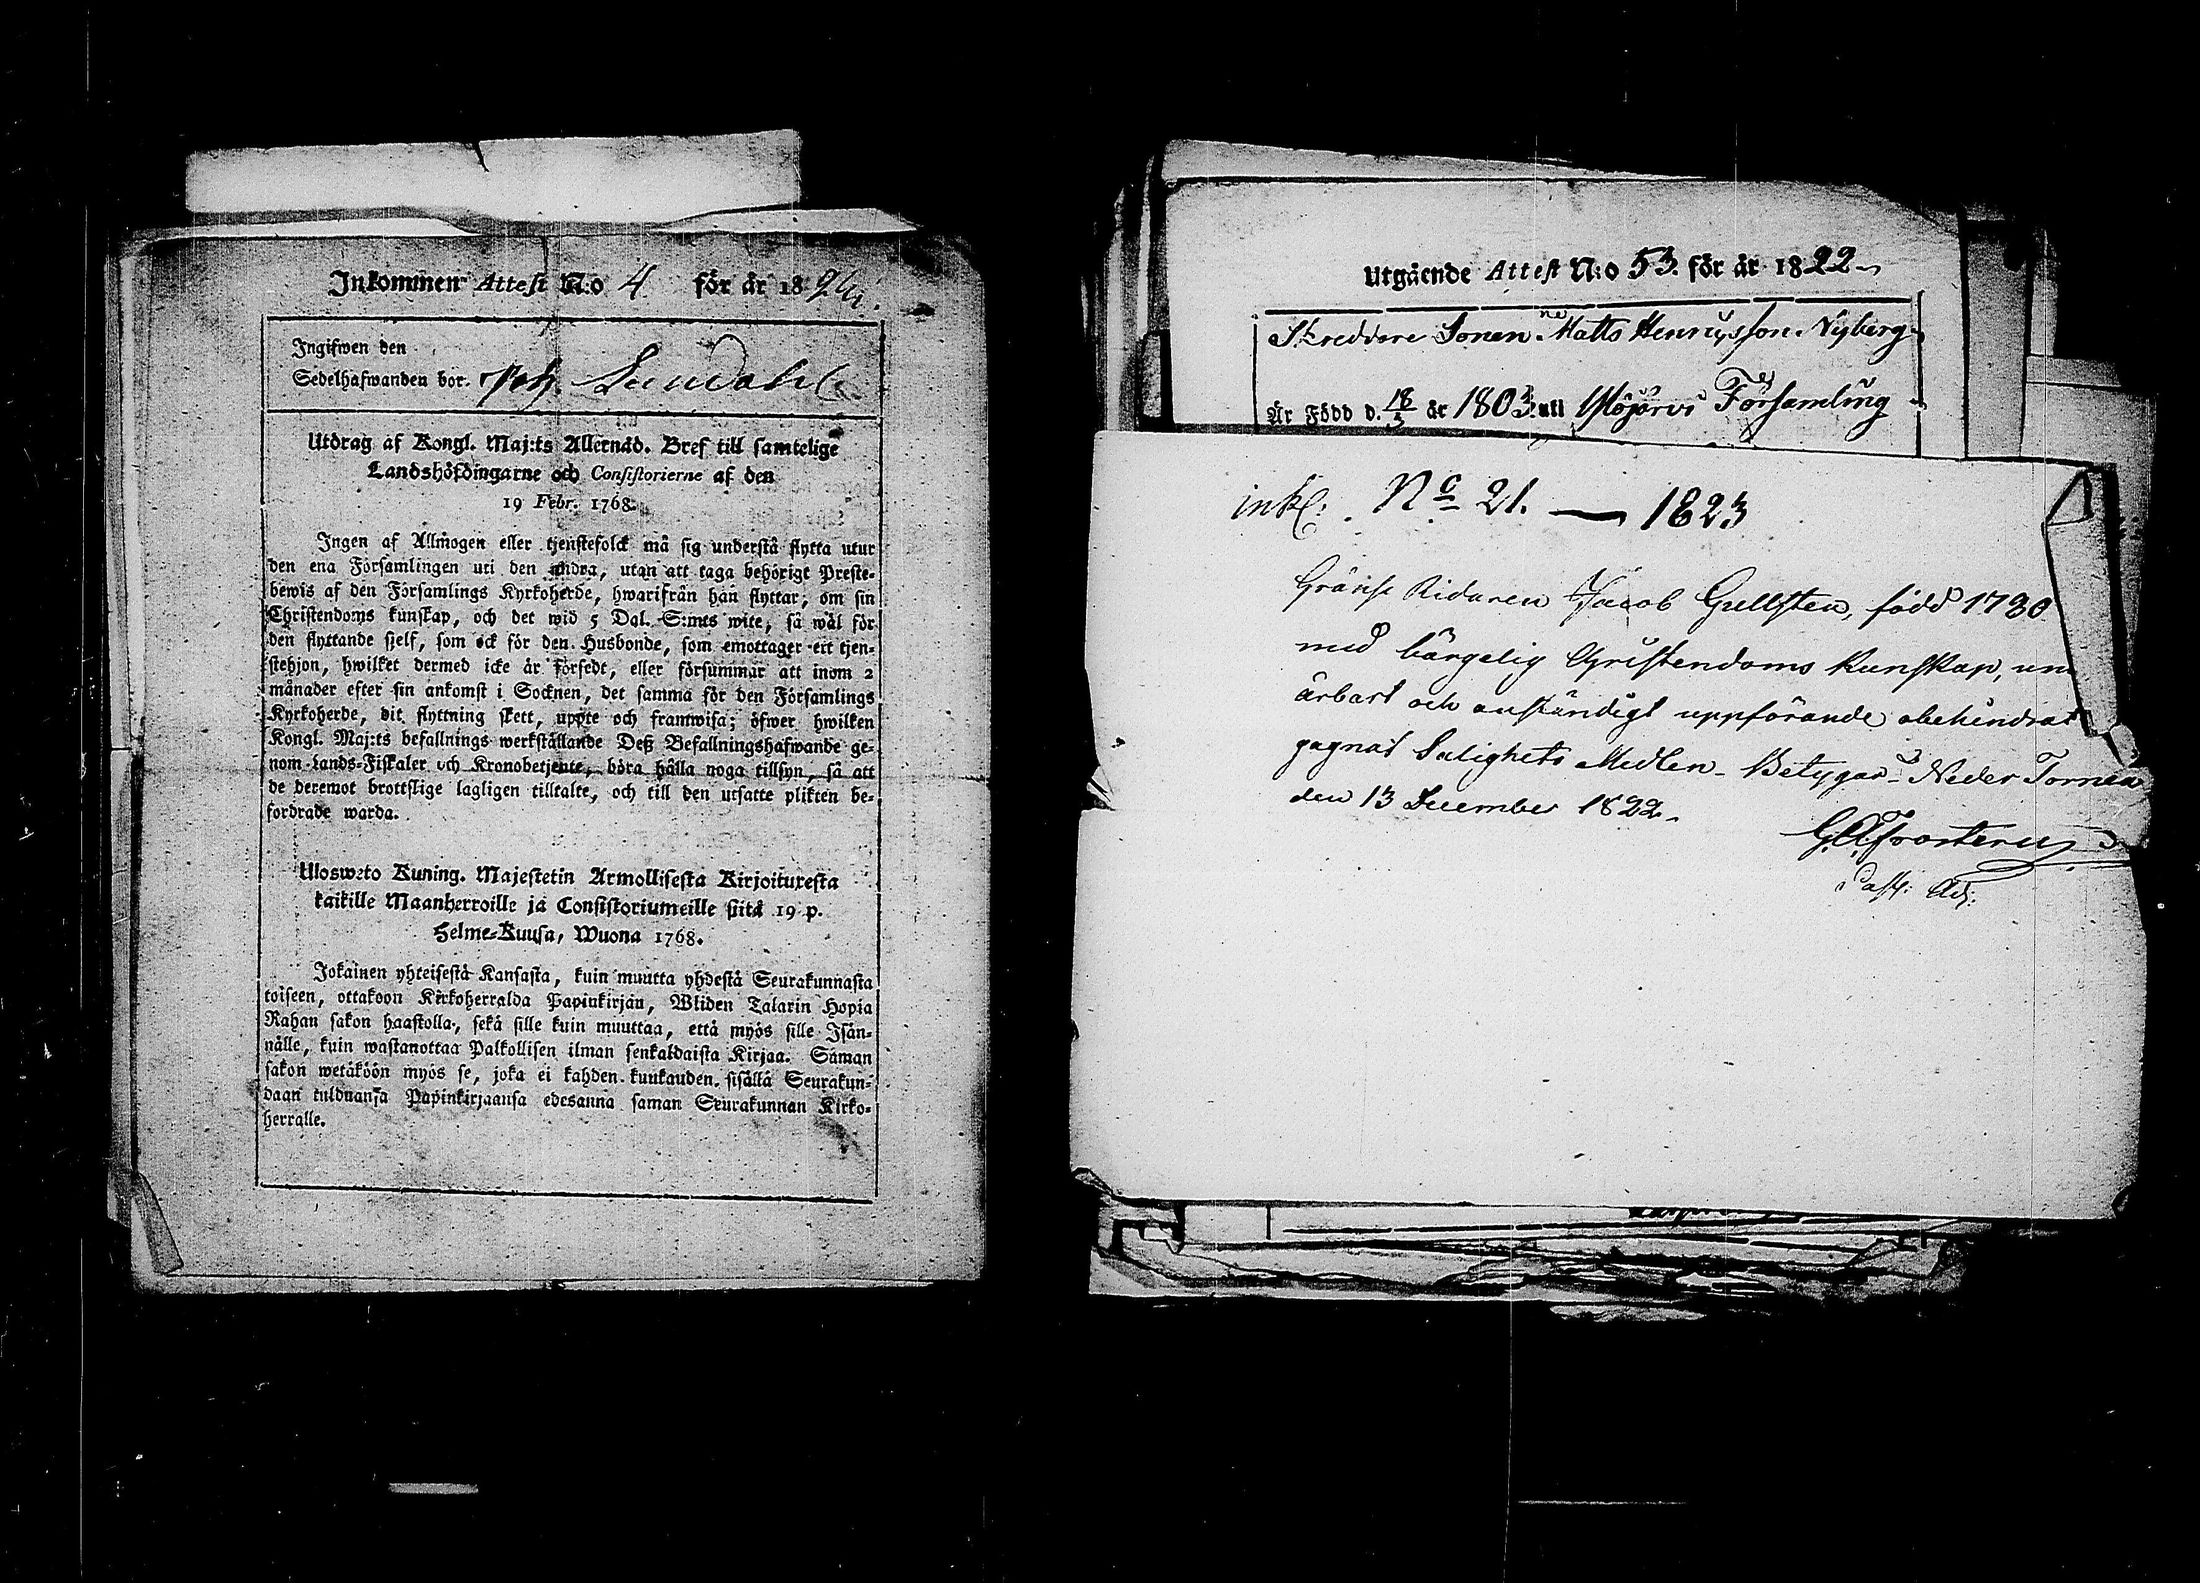 Inkommen Attest N:o 4 för år 18
Ingifwen den
Sedelhafwanden bor. Joh. Sundahl
Utdrag af Kongl. Maj:ts Allernåd. Bref till samtelige
Landshöfdingarne och Consistorierne af den
19 Febr. 1768.
Ingen af Allmogen eller tjenstefolck må sig understå flytta utur
den ena Församlingen uti den andra, utan att taga behörigt Preste-
bewis af den Församlings Kyrkoherde, hwarifrån han flyttar, om sin
Christendoms kunskap, och det wid 5 Dal. S:mts wite, så wäl för
den flyttande sjelf, som ock för den Husbonde, som emottager ett tjen-
stehjon, hwilket dermed icke är försedt, eller försummar att inom 2
månader efter sin ankomst i Socknen, det samma för den Församlings
Kyrkoherde, dit flyttning skett, uppte och framwisa; öfwer hwilken
Kongl. Maj:ts befallnings werkställande Deß Befallningshafwande ge-
nom Lands-Fiskaler och Kronobetjente, böra hålla noga tillsyn, så att
de deremot brottslige lagligen tilltalte, och till den utsatte plikten be-
fordrade warda.
Ulosweto Kuning. Majestetin Armollisesta Kirjoituxesta
kaikille Maanherroille ja Consistoriumeille siitä 19 p.
Helme-Kuusa, Wuona 1768.
Jokainen yhteisestä Kansasta, kuin muutta yhdestä Seurakunnasta
toiseen, ottakoon Kirkoherralda Papinkirjan, Wliden Talarin Hopia
Rahan sakon haastolla, sekä sille kuin muuttaa, että myös sille Isän-
nälle, kuin wastanottaa Palkollisen ilman senkaldaista Kirjaa. Saman
sakon wetäköön myös se, joka ei kahden kuukauden sisällä Seurakun-
daan tulduansa Papinkirjaansa edesanna saman Seurakunnan Kirko-
herralle.
Utgående Attest N:o 53. för år 1822
Skreddare Sonen Matts Henricsson Nyberg
Är Född d. 18/5 år 1803 uti Församling
ink: No 21. — 1823
Gränse Ridaren Jacob Gullsten, född 1780
med börgelig Christendoms Kunskap,
ärbart och anständigt uppförande obehindrat
gagnat Salighets Medlen - Betygar Neder Torneå
den 13 December 1822.
Past: Adj: